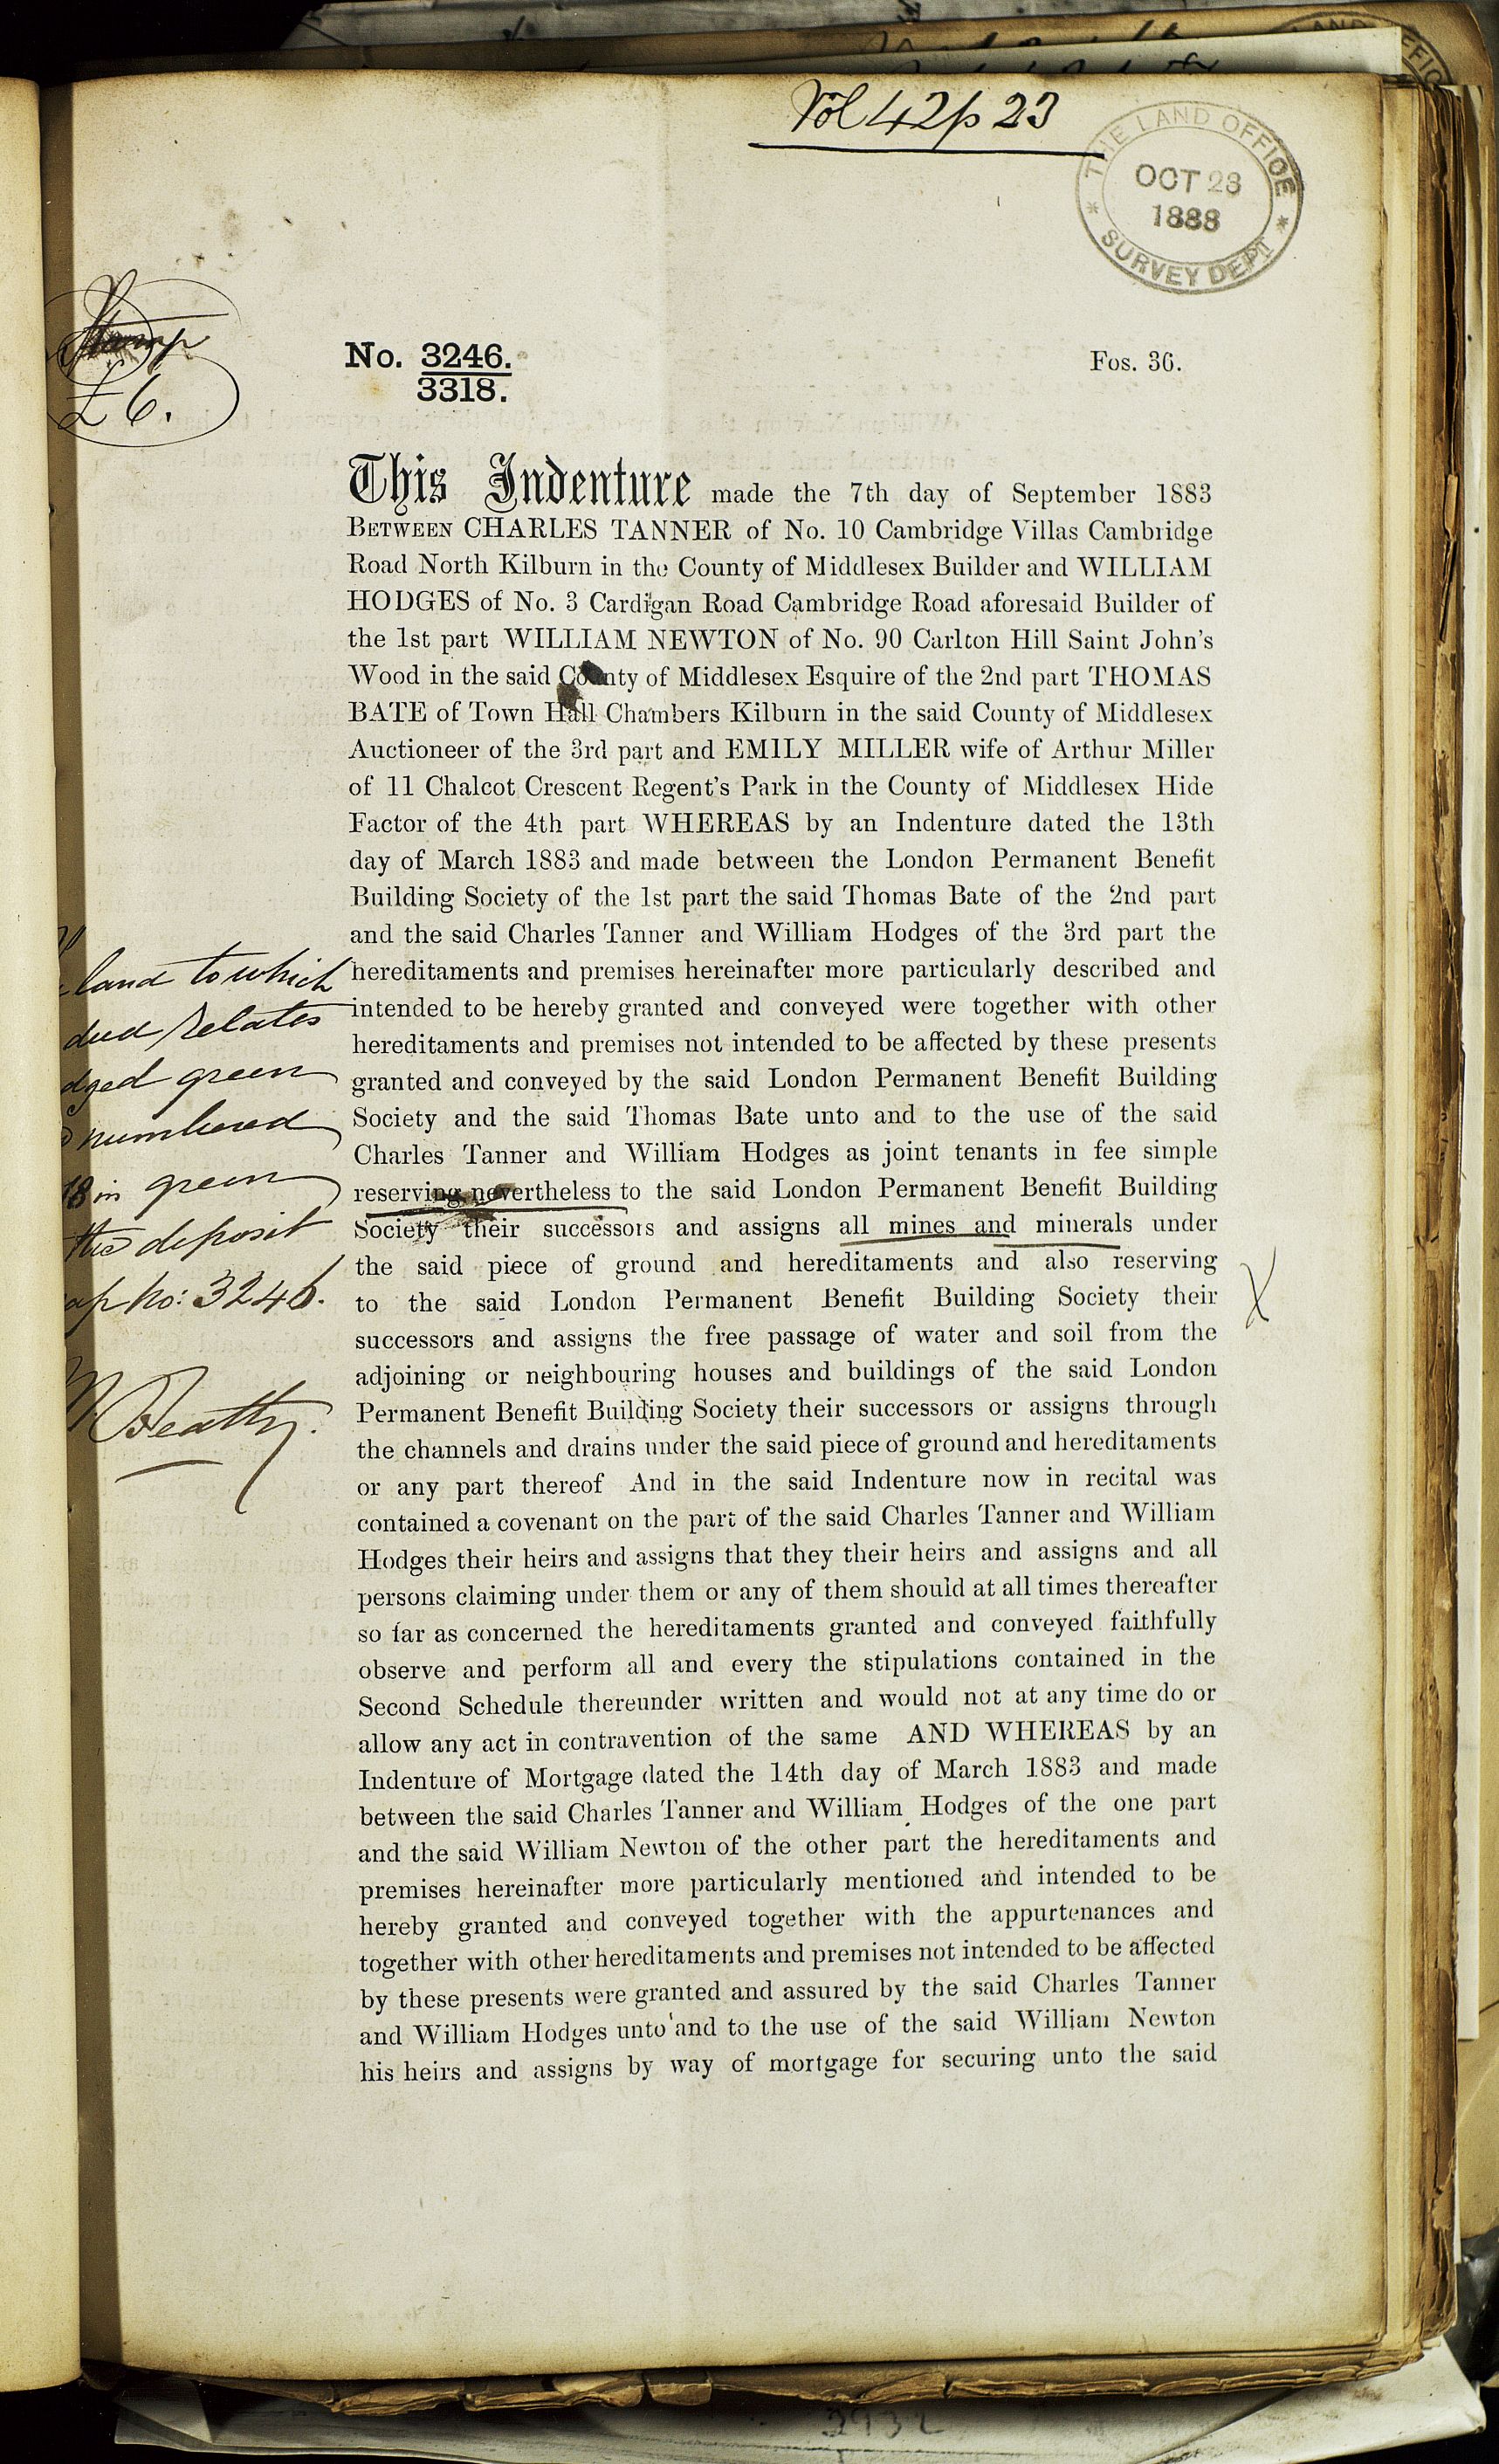 Vol 42 p 23
THE LAND OFFICE
OCT 23
1888
SURVEY DEPT
Stamp
£6.
No. 3246.
3318.
Fos. 36.
This Indenture made the 7th day of September 1883
BETWEEN CHARLES TANNER of No. 10 Cambridge Villas Cambridge
Road North Kilburn in the County of Middlesex Builder and WILLIAM
HODGES of No. 3 Cardigan Road Cambridge Road aforesaid Builder of
the 1st part WILLIAM NEWTON of No. 90 Carlton Hill Saint John's
Wood in the said County of Middlesex Esquire of the 2nd part THOMAS
BATE of Town Hall Chambers Kilburn in the said County of Middlesex
Auctioneer of the 3rd part and EMILY MILLER wife of Arthur Miller
of 11 Chalcot Crescent Regent's Park in the County of Middlesex Hide
Factor of the 4th part WHEREAS by an Indenture dated the 13th
day of March 1883 and made between the London Permanent Benefit
Building Society of the 1st part the said Thomas Bate of the 2nd part
and the said Charles Tanner and William Hodges of the 3rd part the
hereditaments and premises hereinafter more particularly described and
intended to be hereby granted and conveyed were together with other
hereditaments and premises not intended to be affected by these presents
granted and conveyed by the said London Permanent Benefit Building
Society and the said Thomas Bate unto and to the use of the said
Charles Tanner and William Hodges as joint tenants in fee simple
reserving nevertheless to the said London Permanent Benefit Building
Society their successors and assigns all mines and minerals under
the said piece of ground and hereditaments and also reserving
to the said London Permanent Benefit Building Society their
successors and assigns the free passage of water and soil from the
adjoining or neighbouring houses and buildings of the said London
Permanent Benefit Building Society their successors or assigns through
the channels and drains under the said piece of ground and hereditaments
or any part thereof And in the said Indenture now in recital was
contained a covenant on the part of the said Charles Tanner and William
Hodges their heirs and assigns that they their heirs and assigns and all
persons claiming under them or any of them should at all times thereafter
so far as concerned the hereditaments granted and conveyed faithfully
observe and perform all and every the stipulations contained in the
Second Schedule thereunder written and would not at any time do or
allow any act in contravention of the same AND WHEREAS by an
Indenture of Mortgage dated the 14th day of March 1883 and made
between the said Charles Tanner and William Hodges of the one part
and the said William Newton of the other part the hereditaments and
premises hereinafter more particularly mentioned and intended to be
hereby granted and conveyed together with the appurtenances and
together with other hereditaments and premises not intended to be affected
by these presents were granted and assured by the said Charles Tanner
and William Hodges unto and to the use of the said William Newton
his heirs and assigns by way of mortgage for securing unto the said
land to which
deed relates
dged green
numbered
18 in green
the deposit
ap No: 3246.
Beatty.
X